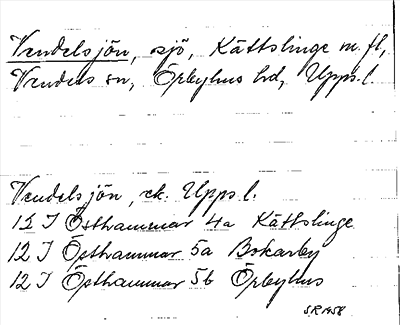 Vendelsjön, sjö, Kättslinge m. fl,
Vendels sn, Örbyhus hd, Upps. l.
Vendelsjön, ek. Upps. l.
12 I Östhammar 4a Kättslinge
12 I Östhammar 5a Bokarby
12 I Östhammar 5b Örbyhus
SR 1958